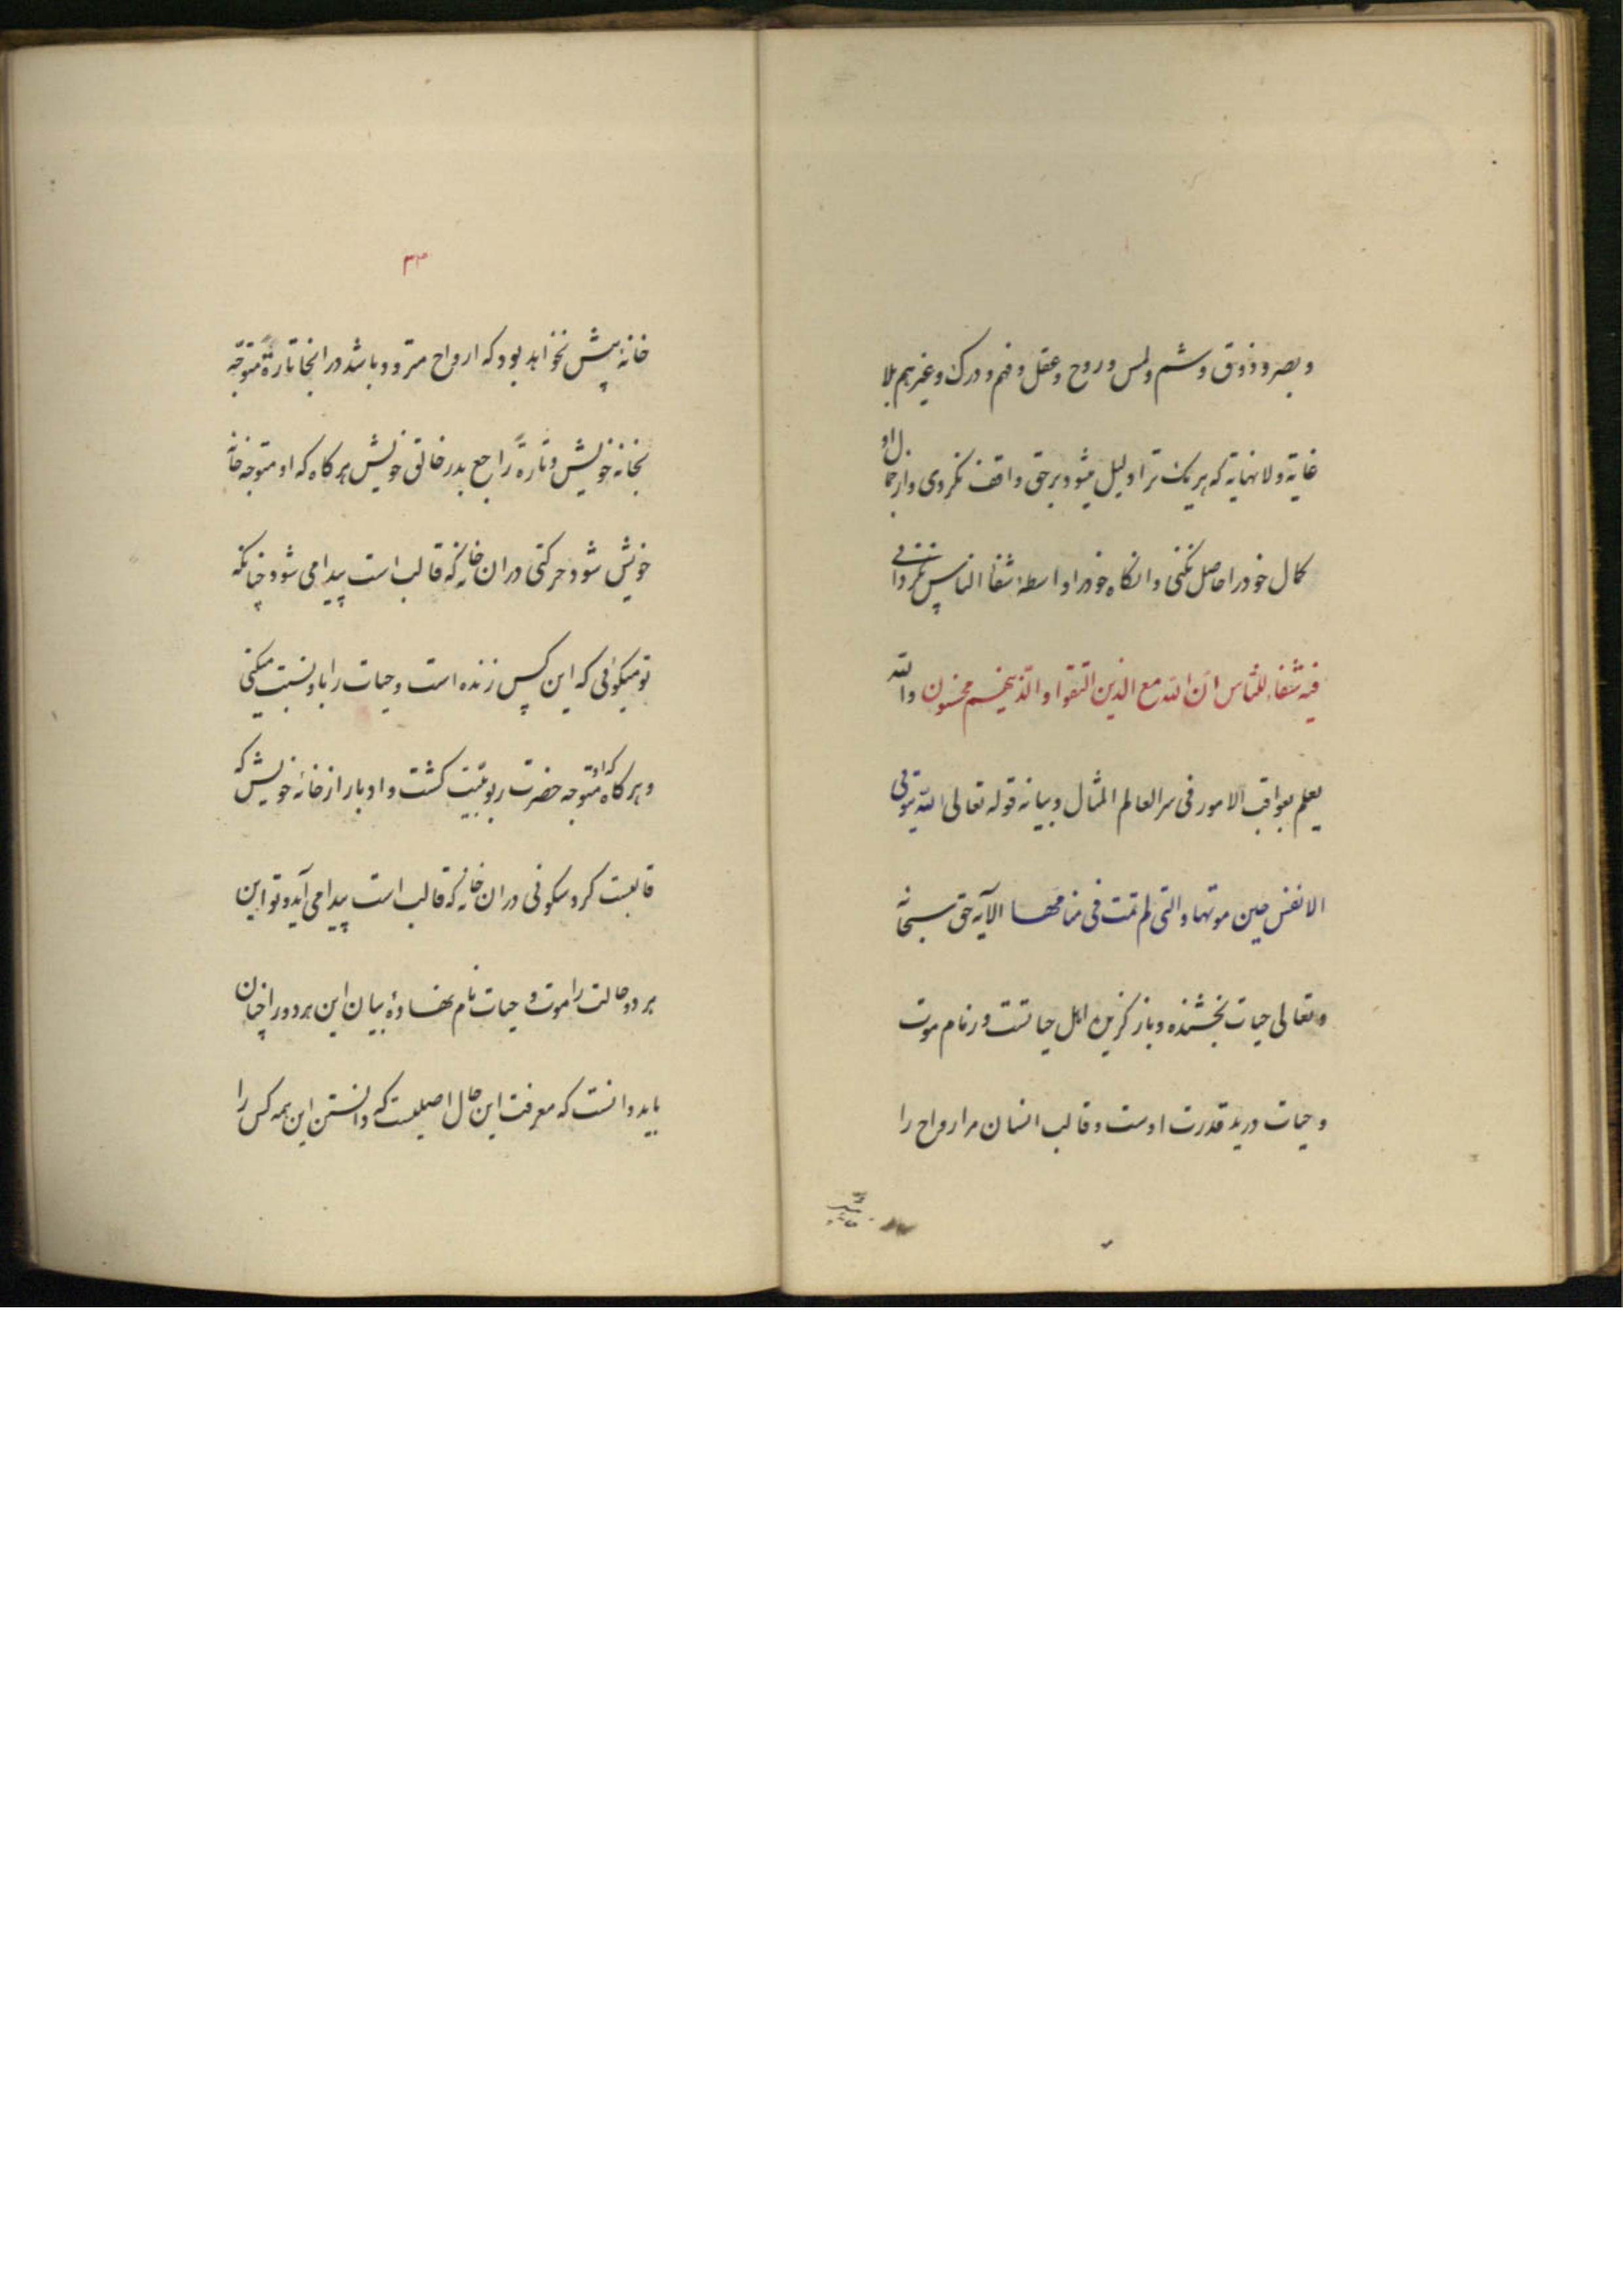 و بصر و ذوق و شم و لمس و روح و عقل و فهم و درک و غیرهم بلا
غایة و لا نهایة که هر یک ترا دلیل میشود بر حق واقف نکردی و از جمال او
کمال خود را حاصل نکنی و انکاه خود را واسطهٔ شفا الناس نکردانی
فیه شفاء للناس ان الله مع الذین اتقوا و الذینهم محسنون والله
یعلم بعواقب الامور فی سر العالم المثال و بیانه قوله تعالی الله یتوفی
الانفس حین موتها و التی لم تمت فی منامها الآیه حق سبحانه
و تعالی حیات بخشنده و باز کزین اهل حیاتست و زمام موت
و حیات در ید قدرت اوست و قالب انسان مر ارواح را
۳۳
خانهٔ پیش نخواهد بود که ارواح متردد باشد در انجا تارةً متوجه
بخانه خویش و تارةً راجع بدر خالق خویش هر کاه که او متوجه خانه
خویش شود حرکتی دران خانه که قالب است پیدا می شود چنانکه
تو میکوئی که این کس زنده است و حیات را باو نسبت میکنی
و هر کاه که او متوجه حضرت ربوبیت کشت و ادبار از خانهٔ خویش که
قالبست کرد سکونی دران خانه که قالب است پیدا می آید و تو این
هر دو حالت را موت و حیات نام نهادهٔ بیان این هر دو را چنان
باید دانست که معرفت این حال اصلیست که دانستن این همه کس را